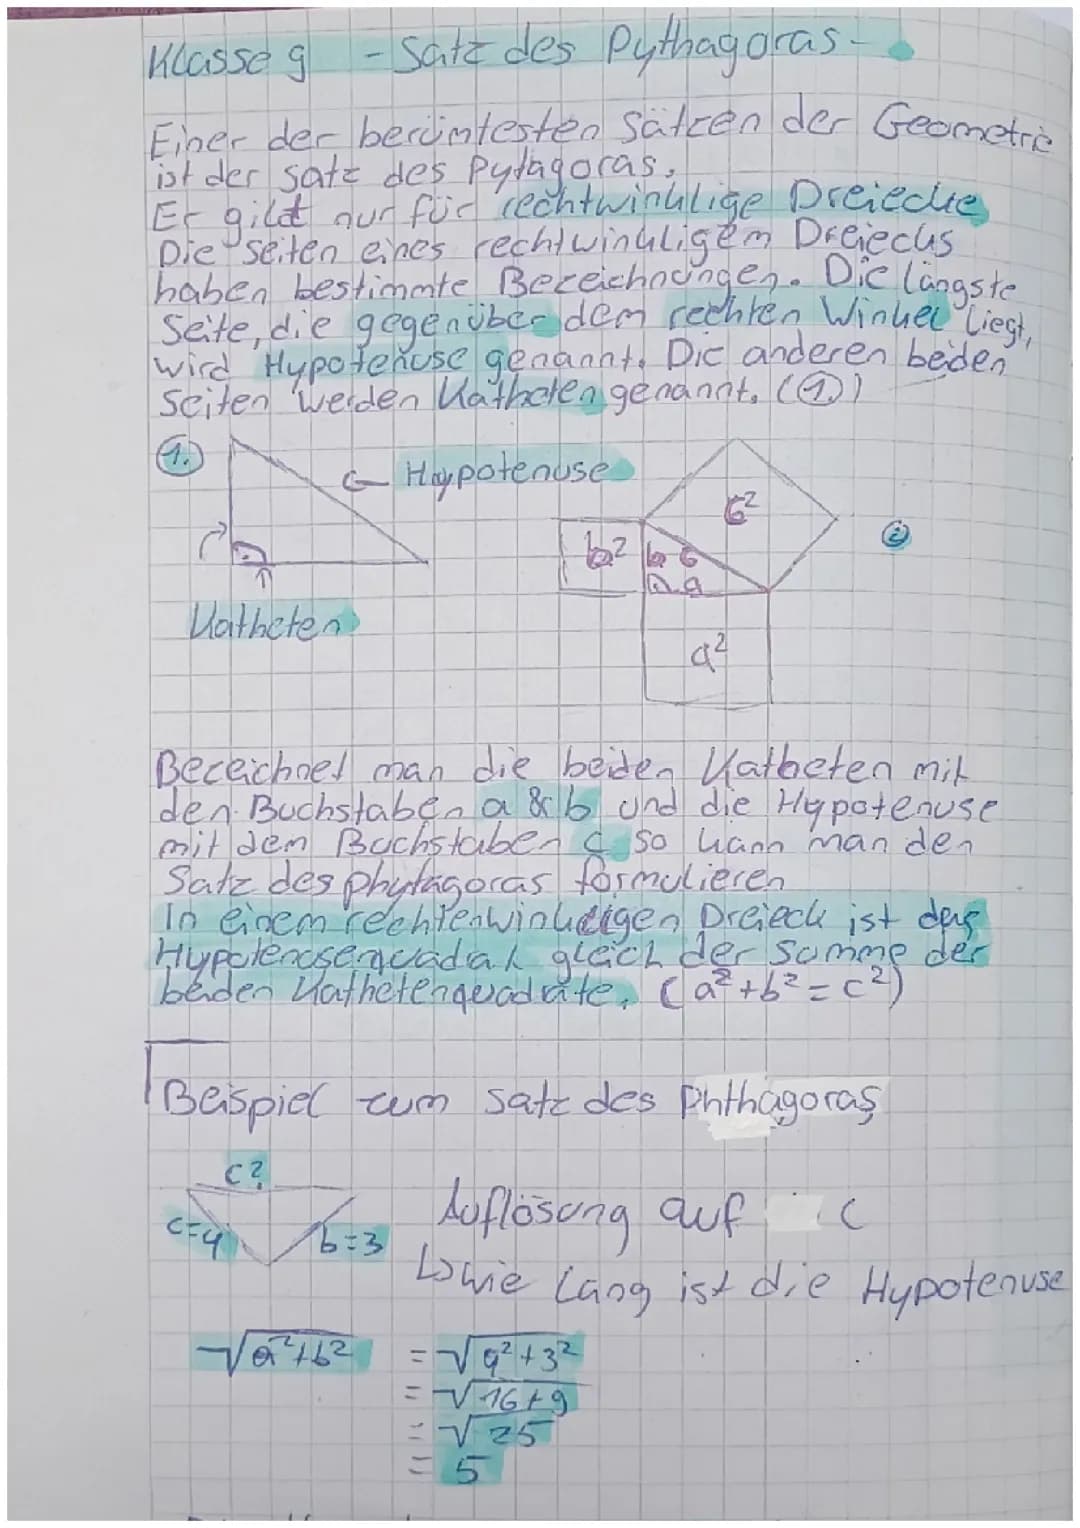 Klasse 9 - Satz des Pythagoras -
Einer der berümtesten Sätzen der Geometrie
ist der Satz des Pytagoras.
Er gildt nur für rechtwinklige Dreiecke
Die Seiten eines rechtwinkligem Dreiecks
haben bestimmte Bezeichnungen. Die längste
Seite, die gegenüber dem rechten Winkel liegt,
wird Hypotenuse genannt. Die anderen beiden
Seiten werden Katheten genannt. (1.)
1.
Hypotenuse
Katheten
c²
b²
b c
a
a²
2
Bezeichnet man die beiden Katheten mit
den Buchstaben a & b und die Hypotenuse
mit dem Buchstaben c so kann man den
Satz des phytagoras formulieren
In einem rechtenwinkeligen Dreieck ist das
Hypotenusenquadrat gleich der Summe der
beiden Kathetenquadrate. (a² + b² = c²)
Beispiel zum Satz des Phthagoras
c?
c=4
b=3
Auflösung auf c
↳ wie lang ist die Hypotenuse
√a²+b² = √4²+3²
= √16+9
= √25
= 5